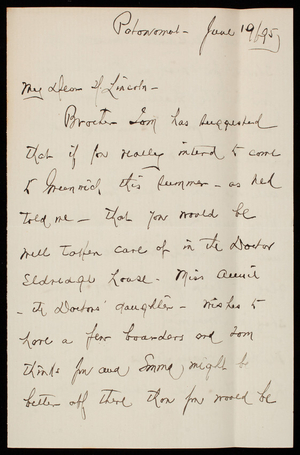 Potowomut - June 19/95
My Dear Mr Lincoln -
Brother Tom has suggested
that if you really intend to come
to Greenwich this summer - as Ned
told me - that you would be
well taken care of in the Doctor
Eldredge house. Miss Annie
- the Doctors' daughter - wishes to
have a few boarders and Tom
thinks you and Emma might be
better off there than you would be